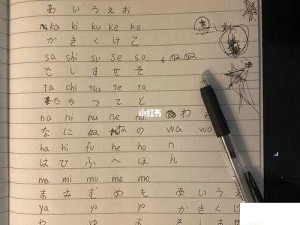 あ い う え お
ka ki ku ke ko
か き く け こ
sa shi su se so
さ し す せ そ
ta chi tsu te to
た ち つ て と
na ni nu ne no わ を
な に ぬ ね の wa wo
ha hi fu he ho n
は ひ ふ へ ほ ん
ma mi mu me mo
ま み む め も あ い う え
ya yu yo か き く け こ
や ゆ よ
小红书